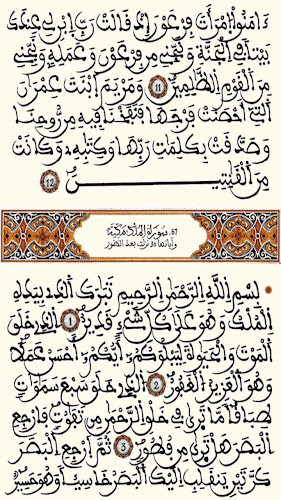 ءامنوا امرأت فرعون إذ قالت رب ابن لي عندك
بيتا في الجنة ونجني من فرعون وعمله ونجني
من القوم الظلمين 11 ومريم ابنت عمران
التي أحصنت فرجها فنفخنا فيه من روحنا
وصدقت بكلمات ربها وكتبه وكانت
من القنتين 12
67 سورة الملك مكية
وآياتها 30 نزلت بعد الطور
بسم الله الرحمن الرحيم تبرك الذي بيده
الملك وهو على كل شيء قدير 1 الذي خلق
الموت والحيوة ليبلوكم أيكم أحسن عملا
وهو العزيز الغفور 2 الذي خلق سبع سموت
طباقا ما ترى في خلق الرحمن من تفوت فارجع
البصر هل ترى من فطور 3 ثم ارجع البصر
كرتين ينقلب إليك البصر خاسئا وهو حسير